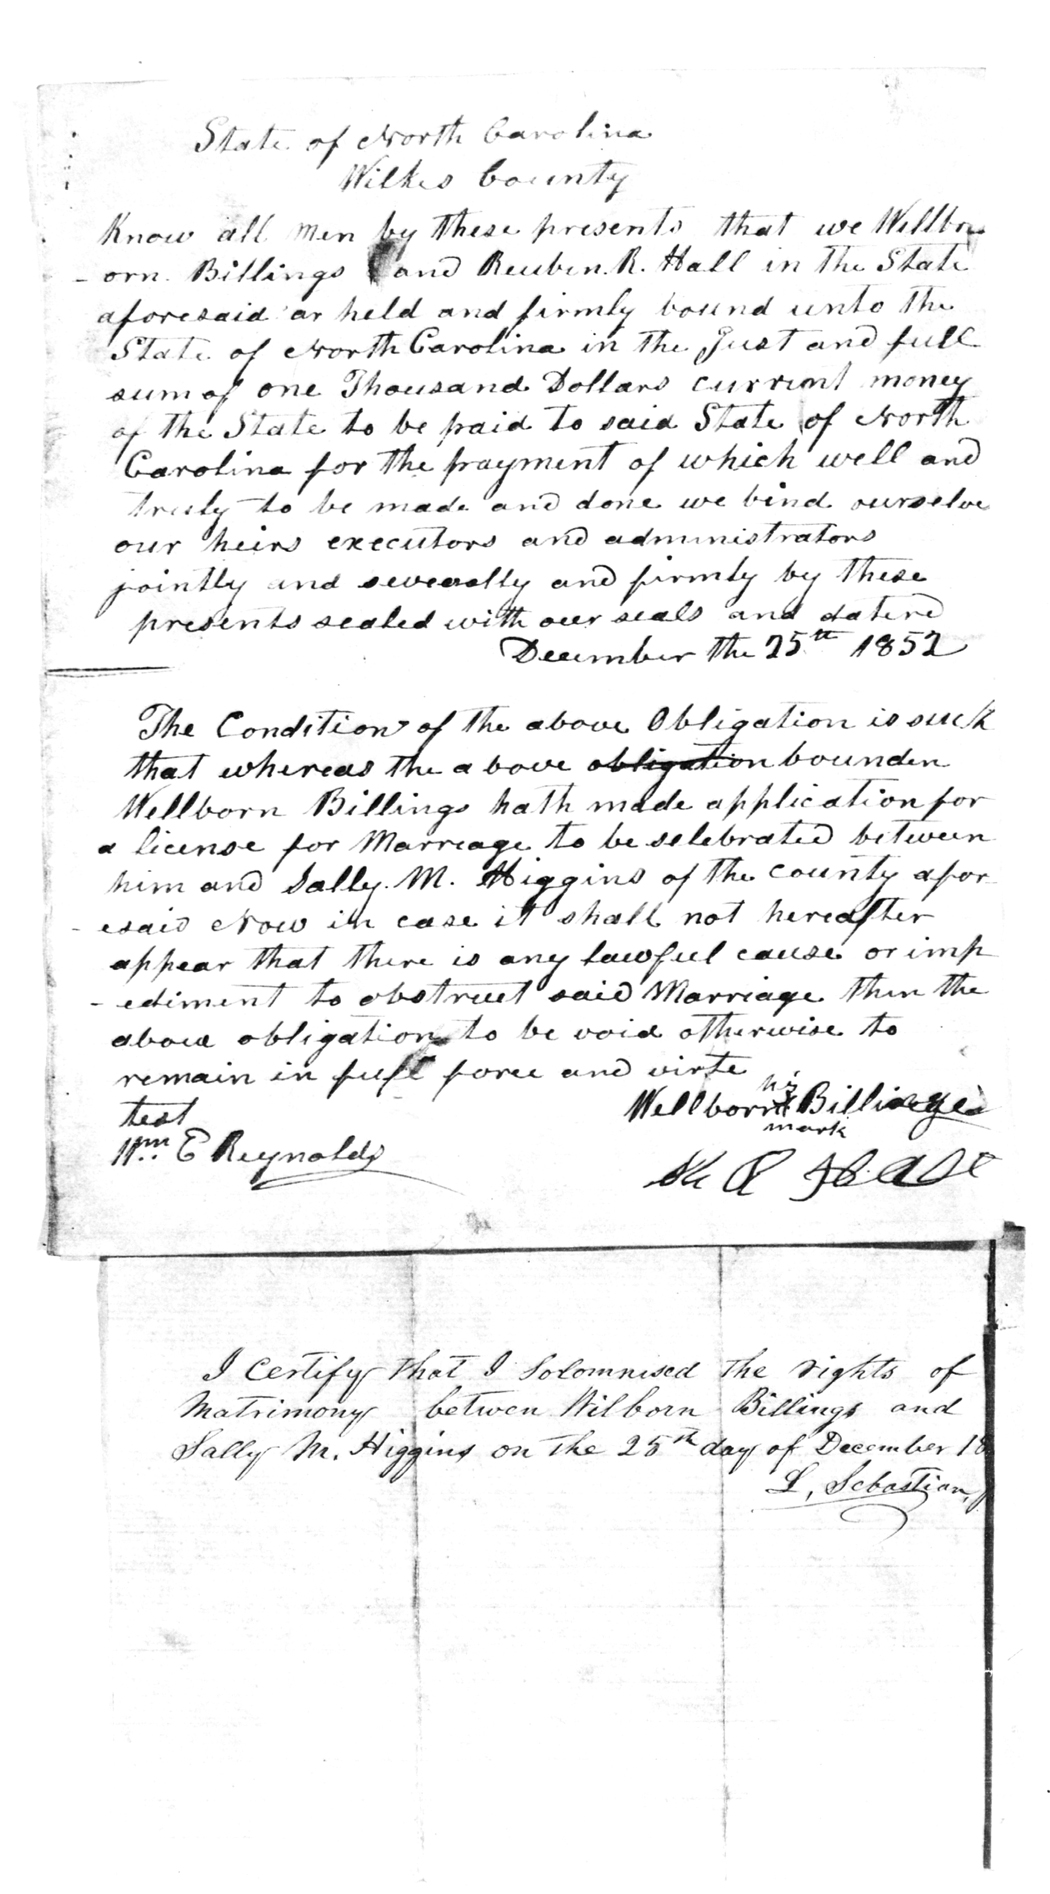 State of North Carolina
Wilkes County
Know all men by these presents that we Wellbo
- orn Billings and Reuben R. Hall in the State
aforesaid ar held and firmly bound unto the
State of North Carolina in the Just and full
sum of one Thousand Dollars current money
of the State to be paid to said State of North
Carolina for the payment of which well and
truly to be made and done we bind ourselve
our heirs executors and administrators
jointly and severally and firmly by these
presents sealed with our seals and datered
December the 25th 1852
The Condition of the above Obligation is such
that whereas the above obligation bounden
Wellborn Billings hath made application for
a license for Marreage to be selebrated between
him and Sally M. Higgins of the county afor
- esaid Now in case it shall not hereafter
appear that there is any lawful cause or imp
- ediment to obstruct said Marriage then the
above obligation to be void otherwise to
remain in full force and virte
test
Wm E Reynolds
his
Wellborn X Billings
mark
R Hall
I Certify that I Solomnised the rights of
Matrimony betwen Wilborn Billings and
Sally M. Higgins on the 25th day of December 18
L, Sebastian, J